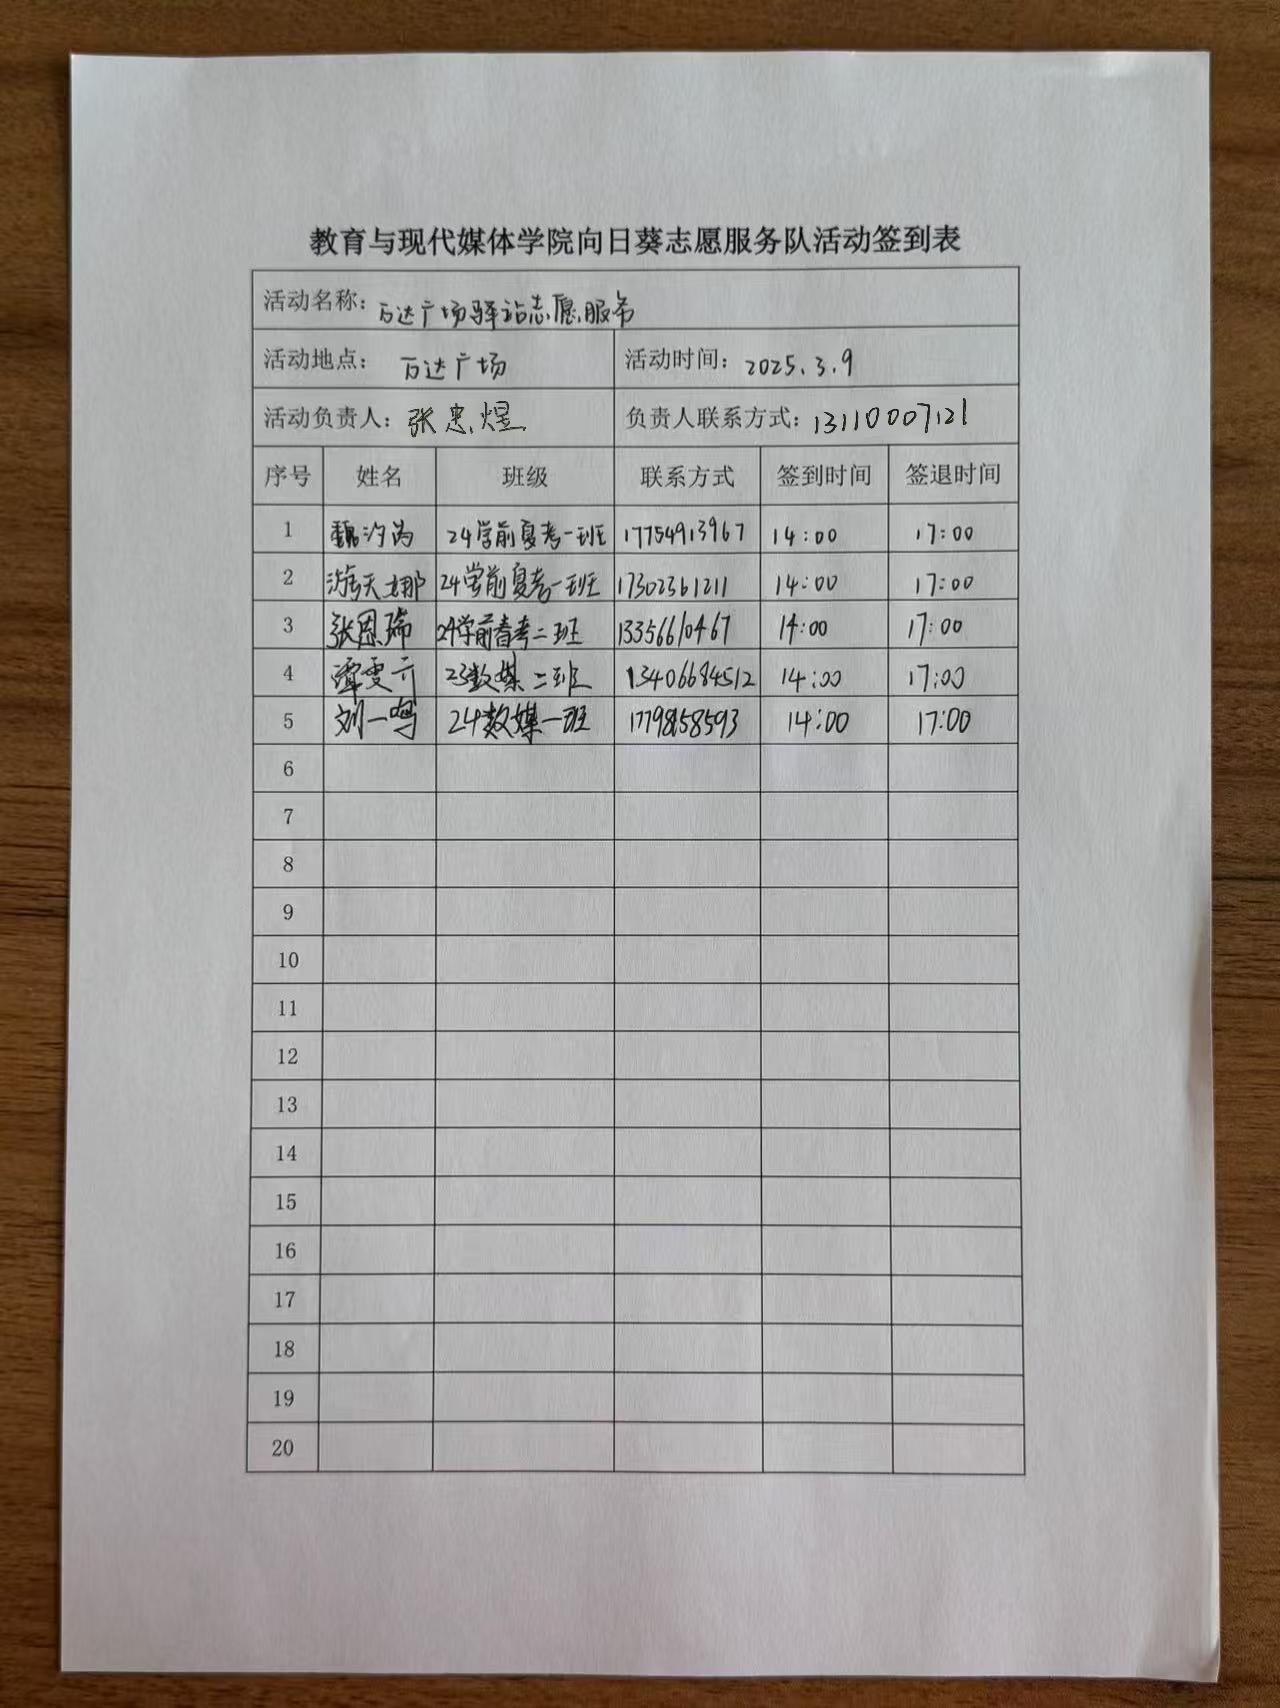 教育与现代媒体学院向日葵志愿服务队活动签到表
活动名称：万达广场驿站志愿服务
活动地点：万达广场 活动时间：2025.3.9
活动负责人：张忠煜 负责人联系方式：13110007121
序号 姓名 班级 联系方式 签到时间 签退时间
1 魏汐 24学前夏考一班 17754913967 14:00 17:00
2 游天娜 24学前夏考一班 17302361211 14:00 17:00
3 张恩瑞 24学前春考二班 13356610467 14:00 17:00
4 谭雯 23数媒二班 13406684512 14:00 17:00
5 刘一鸣 24数媒一班 14:00 17:00
6
7
8
9
10
11
12
13
14
15
16
17
18
19
20